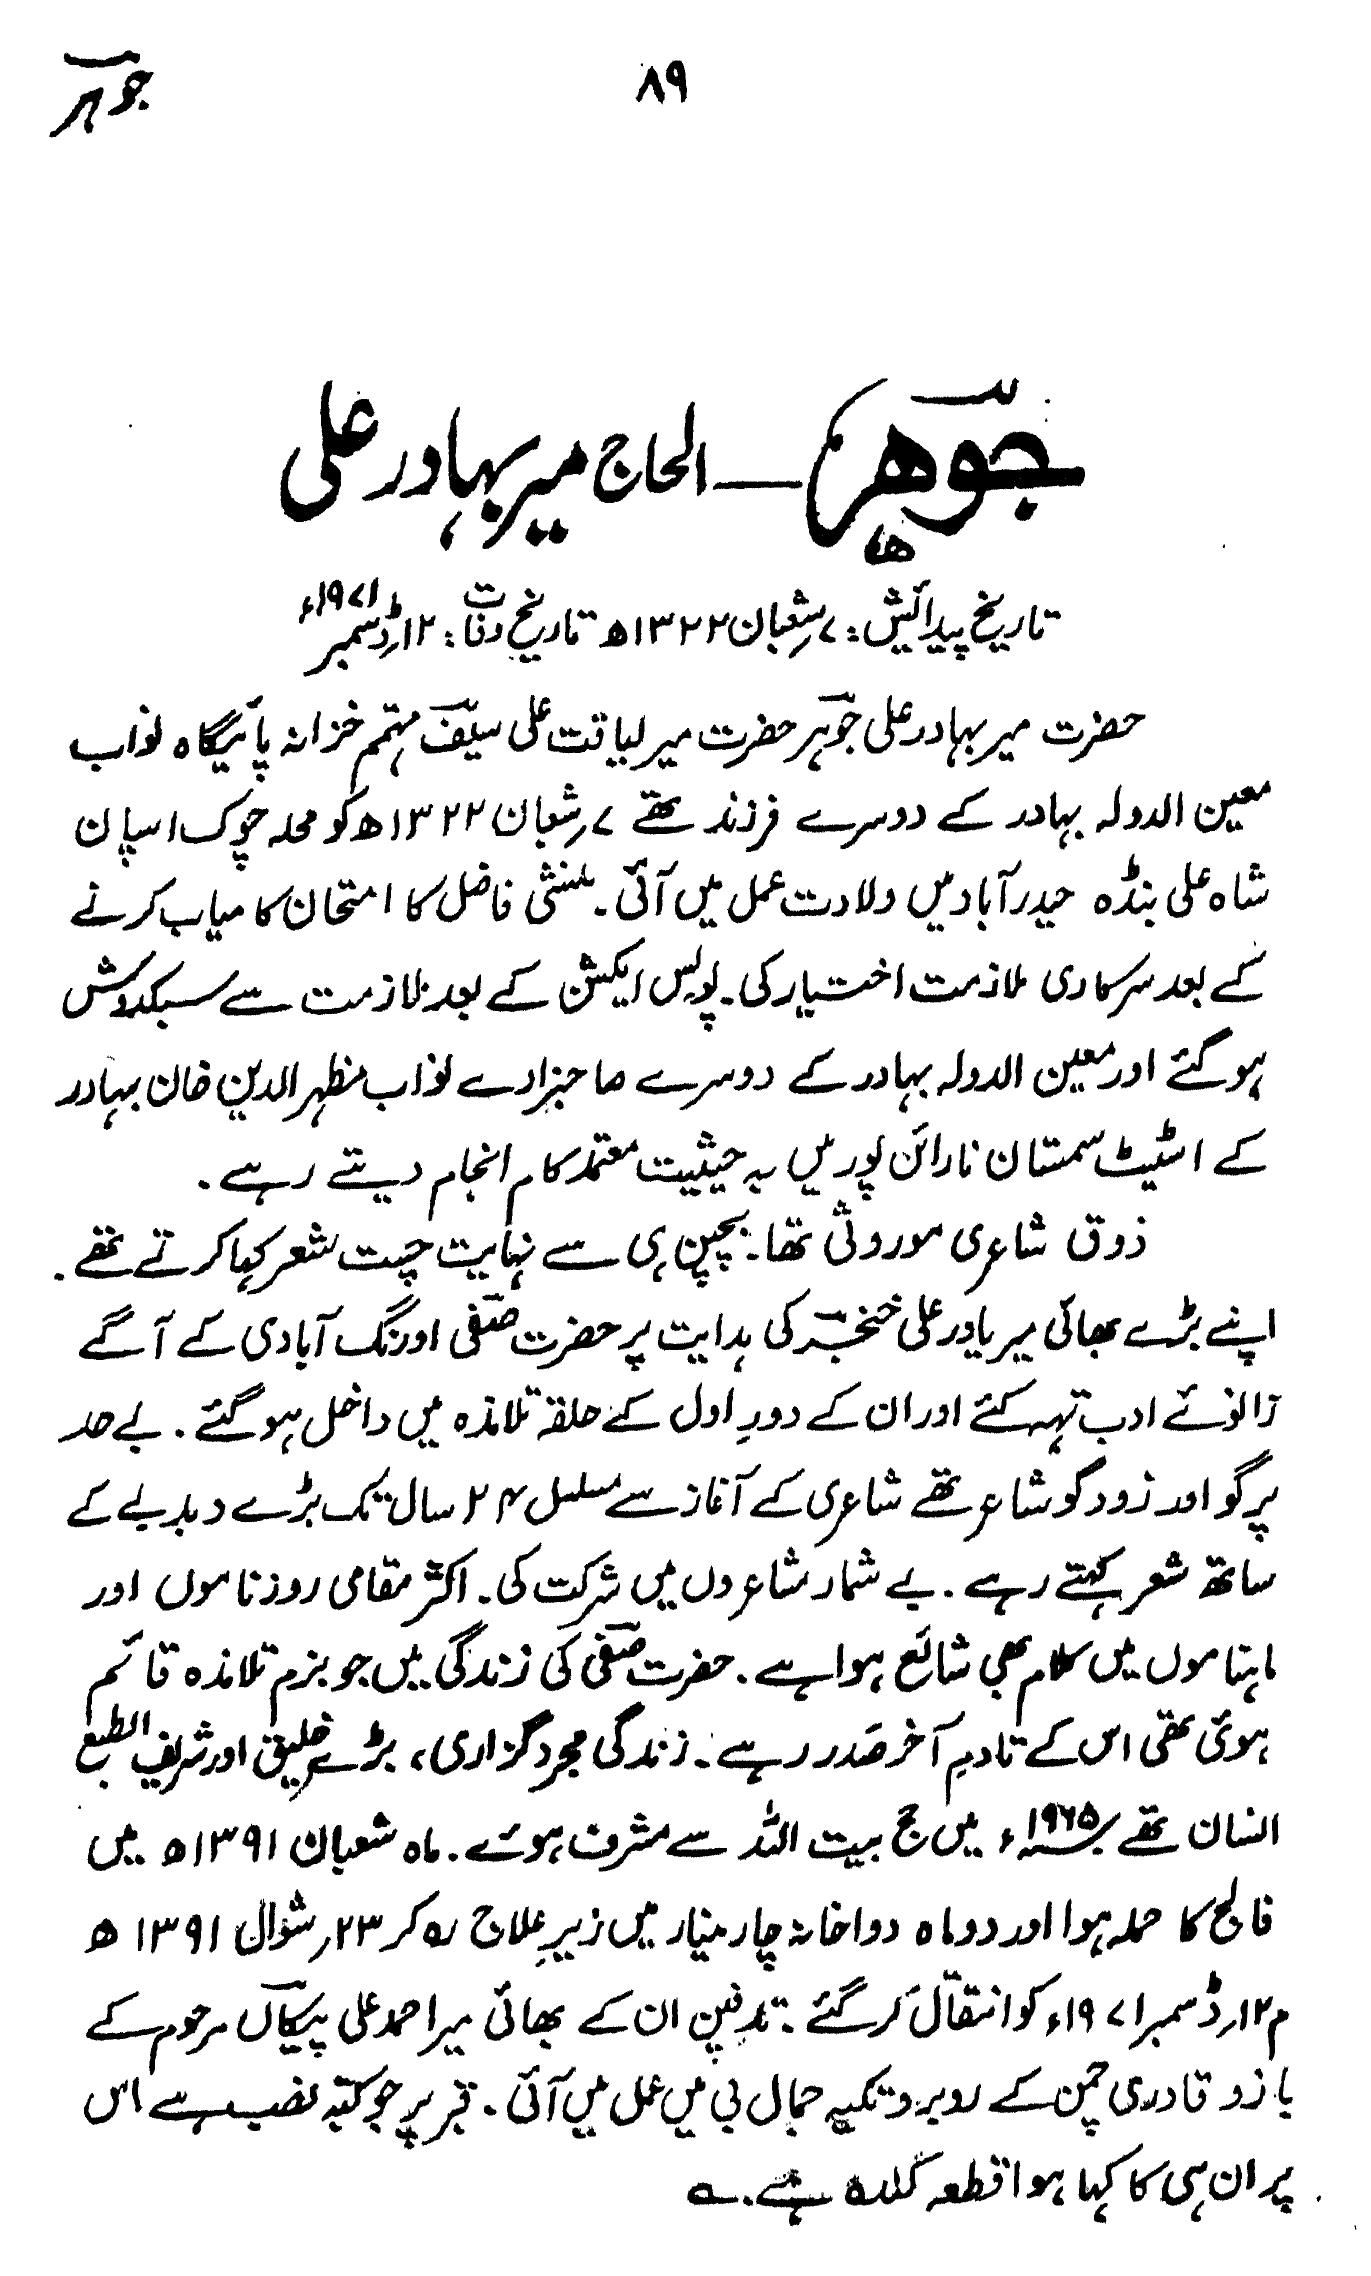 جوہر
۸۹
جوہر — الحاج میر بہادر علی
تاریخ پیدائش: ۷ر شعبان ۱۳۲۲ھ تاریخ وفات: ۱۲ر ڈسمبر ۱۹۷۱ء
حضرت میر بہادر علی جوہر حضرت میر لیاقت علی سیف مہتمم خزانہ پائیگاہ نواب
معین الدولہ بہادر کے دوسرے فرزند تھے ۷ر شعبان ۱۳۲۲ھ کو محلہ چوک اسپان
شاہ علی بنڈہ حیدرآباد میں ولادت عمل میں آئی۔ منشی فاضل کا امتحان کامیاب کرنے
کے بعد سرکاری ملازمت اختیار کی۔ پولیس ایکشن کے بعد ملازمت سے سبکدوش
ہوگئے اور معین الدولہ بہادر کے دوسرے صاحبزادے نواب مظہر الدین خان بہادر
کے اسٹیٹ سمستان نارائن پور میں بہ حیثیت معتمد کام انجام دیتے رہے۔
ذوق شاعری موروثی تھا۔ بچپن ہی سے نہایت چست شعر کہا کرتے تھے۔
اپنے بڑے بھائی میر یاور علی خنجر کی ہدایت پر حضرت صفی اورنگ آبادی کے آگے
زانوئے ادب تہہ کئے اور ان کے دورِ اول کے حلقہ تلامذہ میں داخل ہوگئے۔ بے حد
پرگو اور زودگو شاعر تھے شاعری کے آغاز سے مسلسل ۲۴ سال تک بڑے دبدبے کے
ساتھ شعر کہتے رہے۔ بے شمار مشاعروں میں شرکت کی۔ اکثر مقامی روزناموں اور
ماہناموں میں کلام بھی شائع ہوا ہے۔ حضرت صفی کی زندگی میں جو بزم تلامذہ قائم
ہوئی تھی اس کے تادمِ آخر صدر رہے۔ زندگی مجرد گزاری، بڑے خلیق اور شریف الطبع
انسان تھے ۱۹۶۵ء میں حج بیت اللہ سے مشرف ہوئے۔ ماہ شعبان ۱۳۹۱ھ میں
فالج کا حملہ ہوا اور دو ماہ دواخانہ چار مینار میں زیرِ علاج رہ کر ۲۳ر شوال ۱۳۹۱ھ
م ۱۲ر ڈسمبر ۱۹۷۱ء کو انتقال کر گئے۔ تدفین ان کے بھائی میر احمد علی پیکاں مرحوم کے
بازو قادری چمن کے روبرو تکیہ جمال بی میں عمل میں آئی۔ قبر پر جو کتبہ نصب ہے اس
پر ان ہی کا کہا ہوا قطعہ کندہ ہے۔